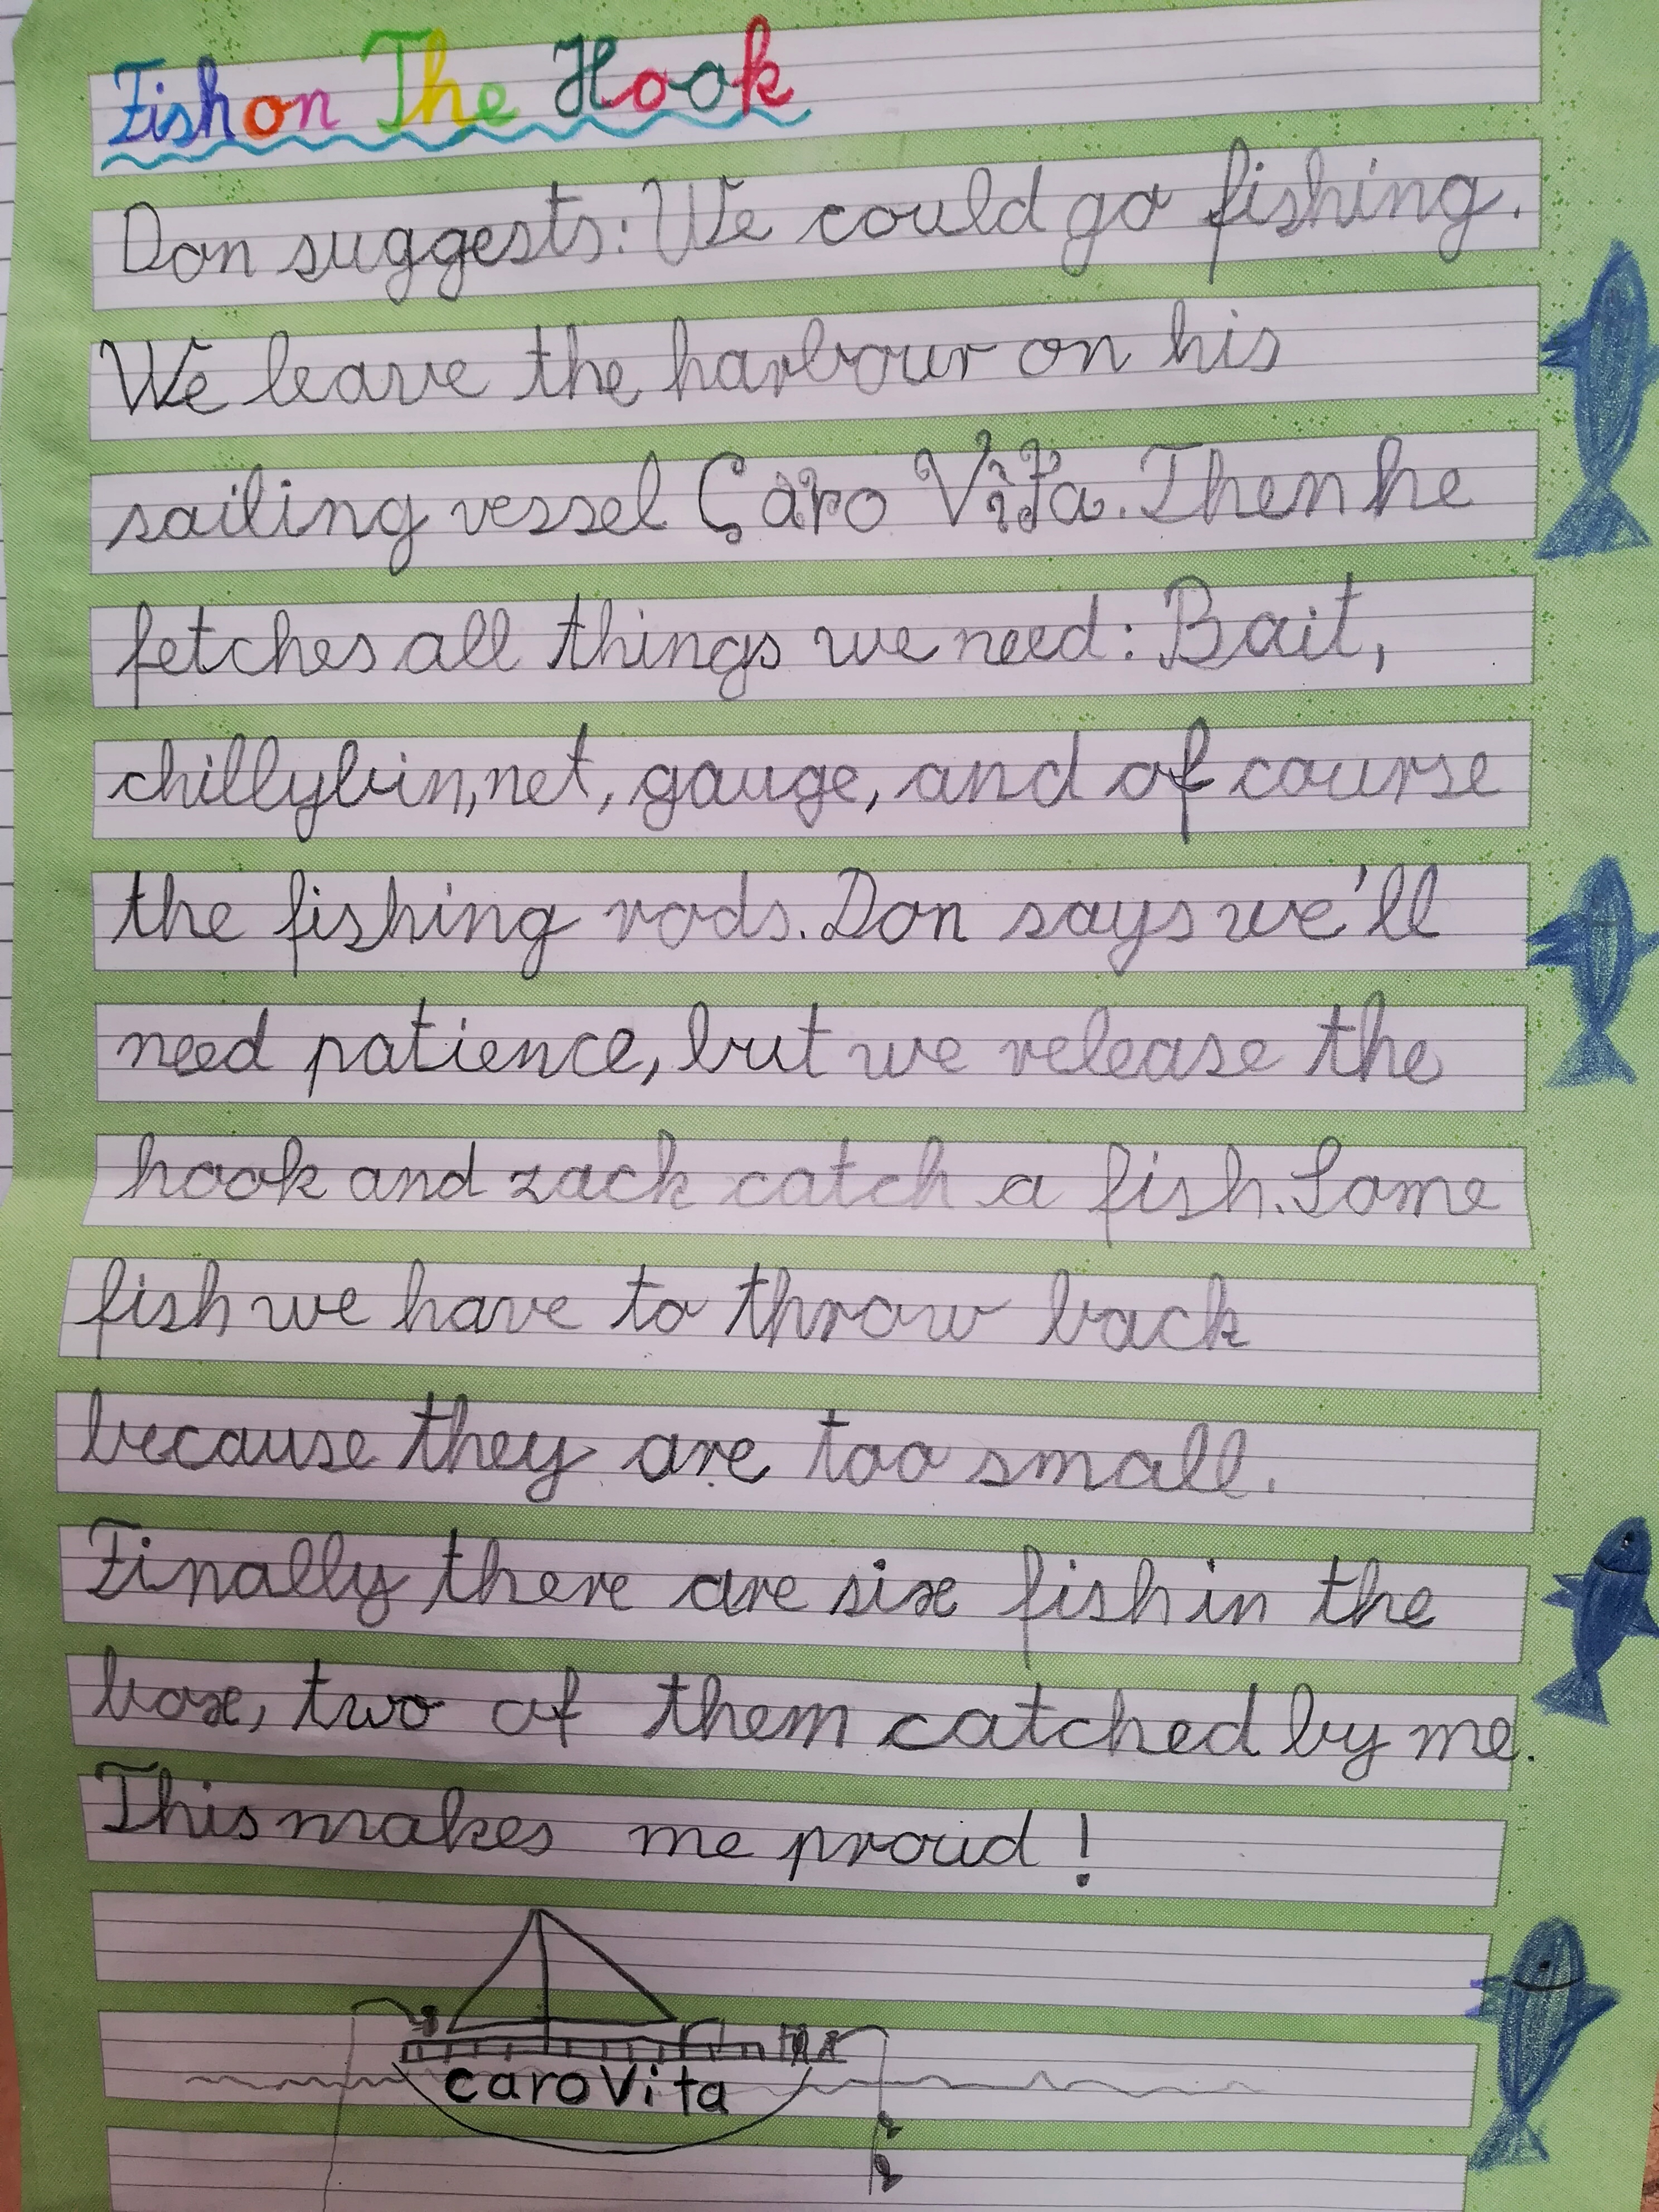 Fish on The Hook
Don suggests: We could go fishing.
We leave the harbour on his
sailing vessel Caro Vita. Then he
fetches all things we need: Bait,
chillybin, net, gauge, and of course
the fishing rods. Don says we'll
need patience, but we release the
hook and zack catch a fish. Some
fish we have to throw back
because they are too small.
Finally there are six fish in the
box, two of them catched by me.
This makes me proud!
caro Vita